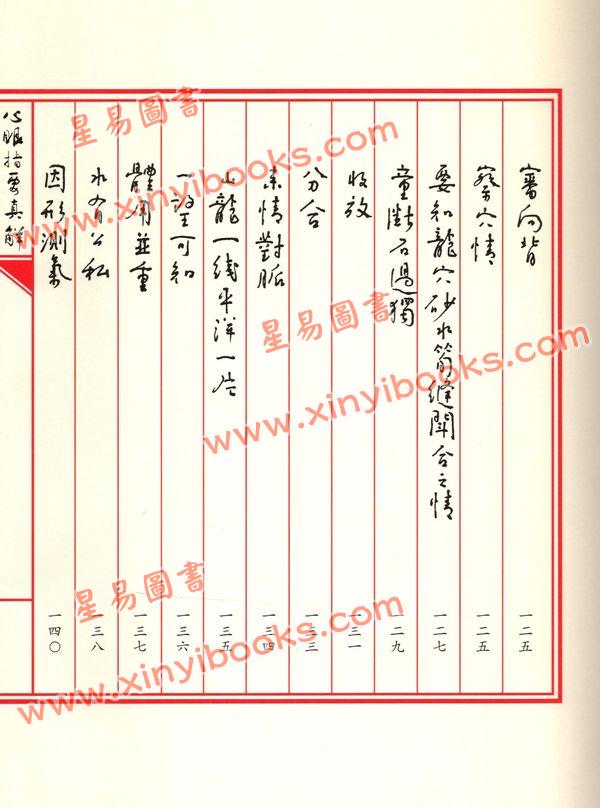 審向背 一二五
察穴情 一二五
要知龍穴砂水筋縫闔合之情 一二七
童斷石過獨 一二九
收放 一三一
分合 一三三
來情對脈 一三四
山龍一线平洋一片 一三五
一望可知 一三六
體用並重 一三七
水有公私 一三八
因形測氣 一四〇
心眼指要真解
星易圖書
www.xinyibooks.com
星易圖書
www.xinyibooks.com
星易圖書
www.xinyibooks.com
星易圖書
www.xinyibooks.com